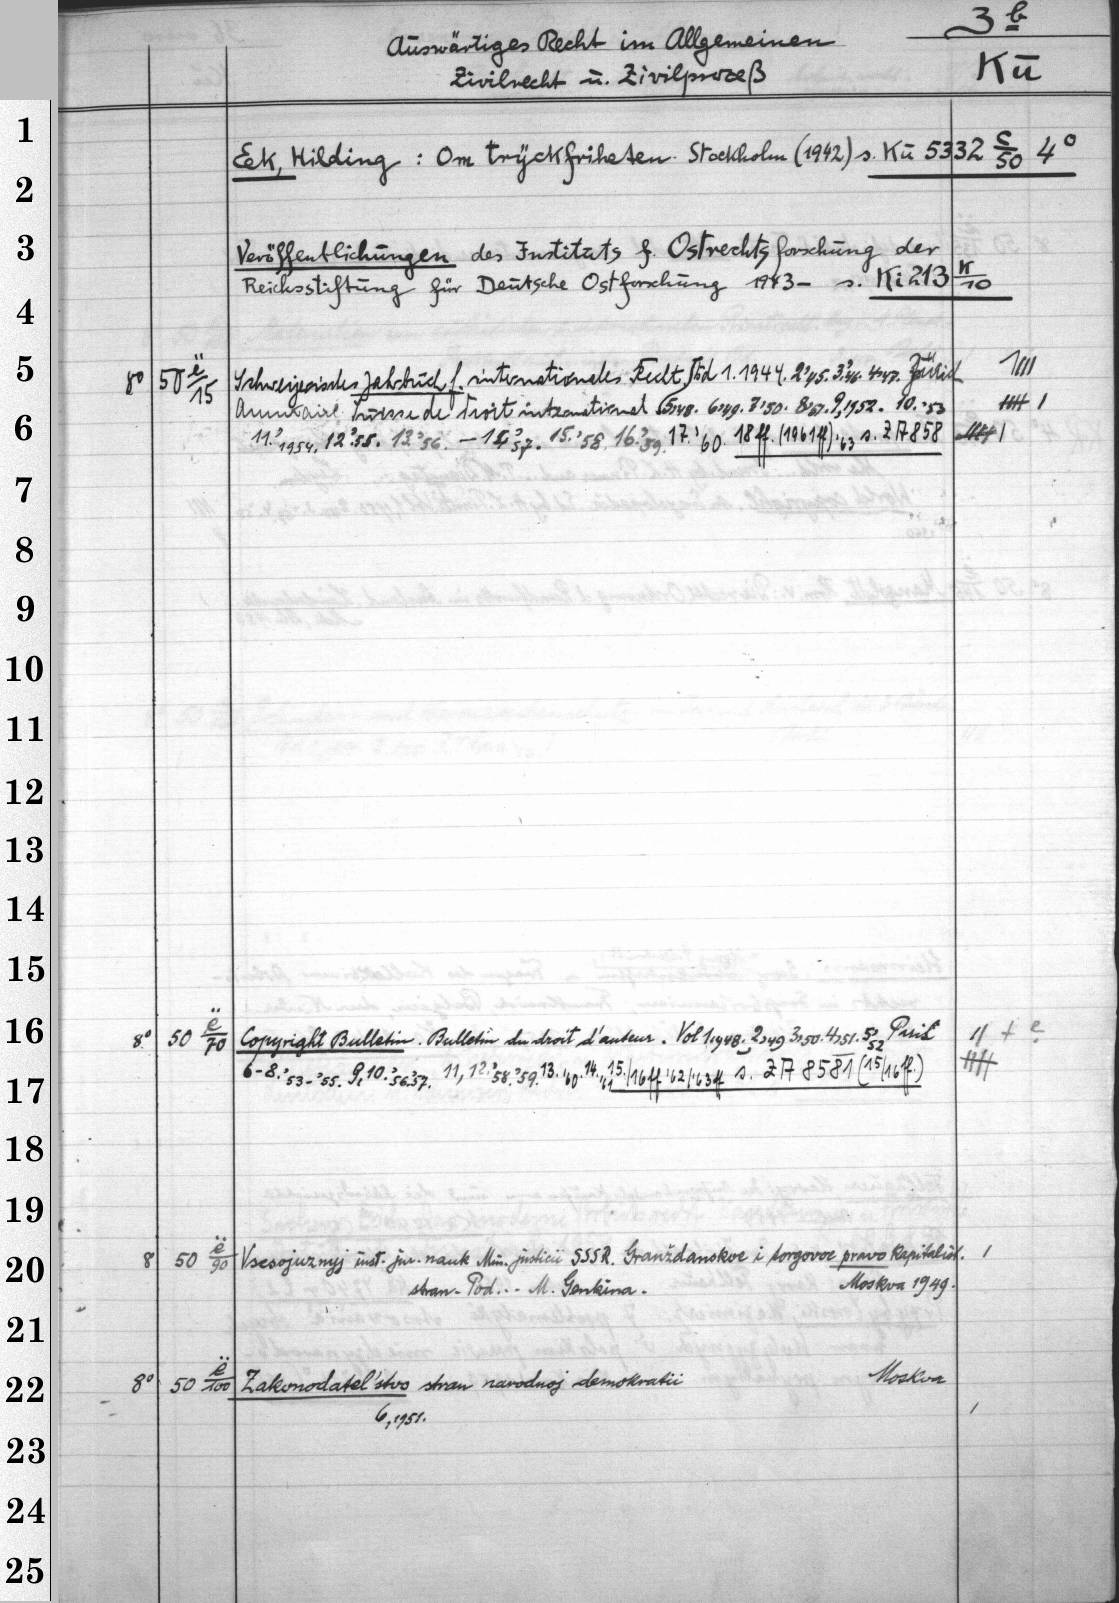 3 b
Auswärtiges Recht im Allgemeinen
Zivilrecht u. Zivilprozeß
Kü
1
Eek, Hilding : Om tryckfriheten. Stockholm (1942) s. Kü 5332 c/50 4°
2
3
Veröffentlichungen des Instituts f. Ostrechtsforschung der
Reichsstiftung für Deutsche Ostforschung 1943– s. Ki 213 K/10
4
5
8° 50 ë/15 Schweizerisches Jahrbuch f. internationales Recht. Bd 1.1944. 2,'45. 3,'46. 4,'47. Zürich
Annuaire Suisse de droit international 5,'48. 6,'49. 7,'50. 8,'51. 9,1952. 10.'53
6
11.1954. 12.'55. 13.'56. – 14,'57. 15.'58. 16.'59. 17.'60. 18ff. (1961ff) '63 s. ZA 858
7
8
9
10
11
12
13
14
15
16
8° 50 ë/70 Copyright Bulletin. Bulletin du droit d'auteur. Vol 1,1948. 2,49 3,50. 4,51. 5,52 Paris
6-8.'53-'55. 9,10.'56.'57. 11,12.'58.'59. 13.'60. 14.'61 15./16ff '62/'63ff s. ZA 8581 (15/16ff.)
17
18
19
20
8 50 ë/90 Vsesojuznyj inst. jur. nauk Min. justicii SSSR. Graždanskoe i torgovoe pravo kapitalist.
stran. Pod... M. Genkina. Moskva 1949.
21
22
8° 50 ë/100 Zakonodatel'stvo stran narodnoj demokratii Moskva
6,1951.
23
24
25